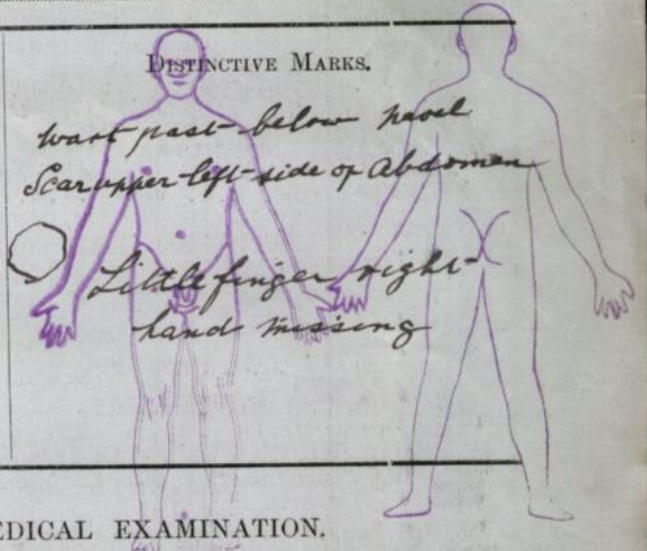 DISTINCTIVE MARKS.
Wart past below navel
Scar upper left side of Abdomen
Little finger right
hand missing
EDICAL EXAMINATION.